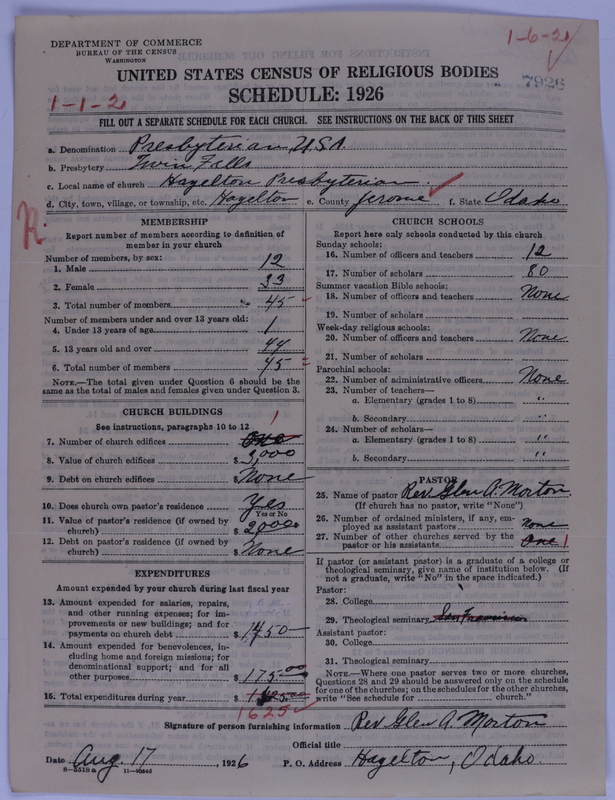 DEPARTMENT OF COMMERCE
BUREAU OF THE CENSUS
WASHINGTON
1-6-2
7926
UNITED STATES CENSUS OF RELIGIOUS BODIES
1-1-2
SCHEDULE: 1926
FILL OUT A SEPARATE SCHEDULE FOR EACH CHURCH. SEE INSTRUCTIONS ON THE BACK OF THIS SHEET
a. Denomination Presbyterian, U.S.A.
b. Presbytery Twin Falls
c. Local name of church Hazelton Presbyterian
d. City, town, village, or township, etc. Hazelton e. County Jerome f. State Idaho
R.
MEMBERSHIP
Report number of members according to definition of
member in your church
Number of members, by sex:
1. Male 12
2. Female 33
3. Total number of members 45
Number of members under and over 13 years old:
4. Under 13 years of age 1
5. 13 years old and over 44
6. Total number of members 45
NOTE.—The total given under Question 6 should be
the same as the total of males and females given under Question 3.
CHURCH BUILDINGS
See instructions, paragraphs 10 to 12
7. Number of church edifices One 1
8. Value of church edifices $3,000
9. Debt on church edifices $None
10. Does church own pastor's residence Yes
Yes or No
11. Value of pastor's residence (if owned by
church) $2000
12. Debt on pastor's residence (if owned by
church) $None
EXPENDITURES
Amount expended by your church during last fiscal year
13. Amount expended for salaries, repairs,
and other running expenses; for im-
provements or new buildings; and for
payments on church debt $1450
14. Amount expended for benevolences, in-
cluding home and foreign missions; for
denominational support; and for all
other purposes $175.00
15. Total expenditures during year $
1625
CHURCH SCHOOLS
Report here only schools conducted by this church
Sunday schools:
16. Number of officers and teachers 12
17. Number of scholars 80
Summer vacation Bible schools:
18. Number of officers and teachers None
19. Number of scholars
Week-day religious schools:
20. Number of officers and teachers None
21. Number of scholars
Parochial schools:
22. Number of administrative officers None
23. Number of teachers—
a. Elementary (grades 1 to 8) "
b. Secondary "
24. Number of scholars—
a. Elementary (grades 1 to 8) "
b. Secondary "
PASTOR
25. Name of pastor Rev. Glen A. Morton
(If church has no pastor, write "None")
26. Number of ordained ministers, if any, em-
ployed as assistant pastors None
27. Number of other churches served by the
pastor or his assistants One 1
If pastor (or assistant pastor) is a graduate of a college or
theological seminary, give name of institution below. (If
not a graduate, write "No" in the space indicated.)
Pastor:
28. College
29. Theological seminary San Francisco
Assistant pastor:
30. College
31. Theological seminary
NOTE.—Where one pastor serves two or more churches,
Questions 28 and 29 should be answered only on the schedule
for one of the churches; on the schedules for the other churches,
write "See schedule for church."
Signature of person furnishing information Rev Glen A. Morton
Official title
Date Aug. 17 1926 P. O. Address Hazelton, Idaho.
8-5518 a